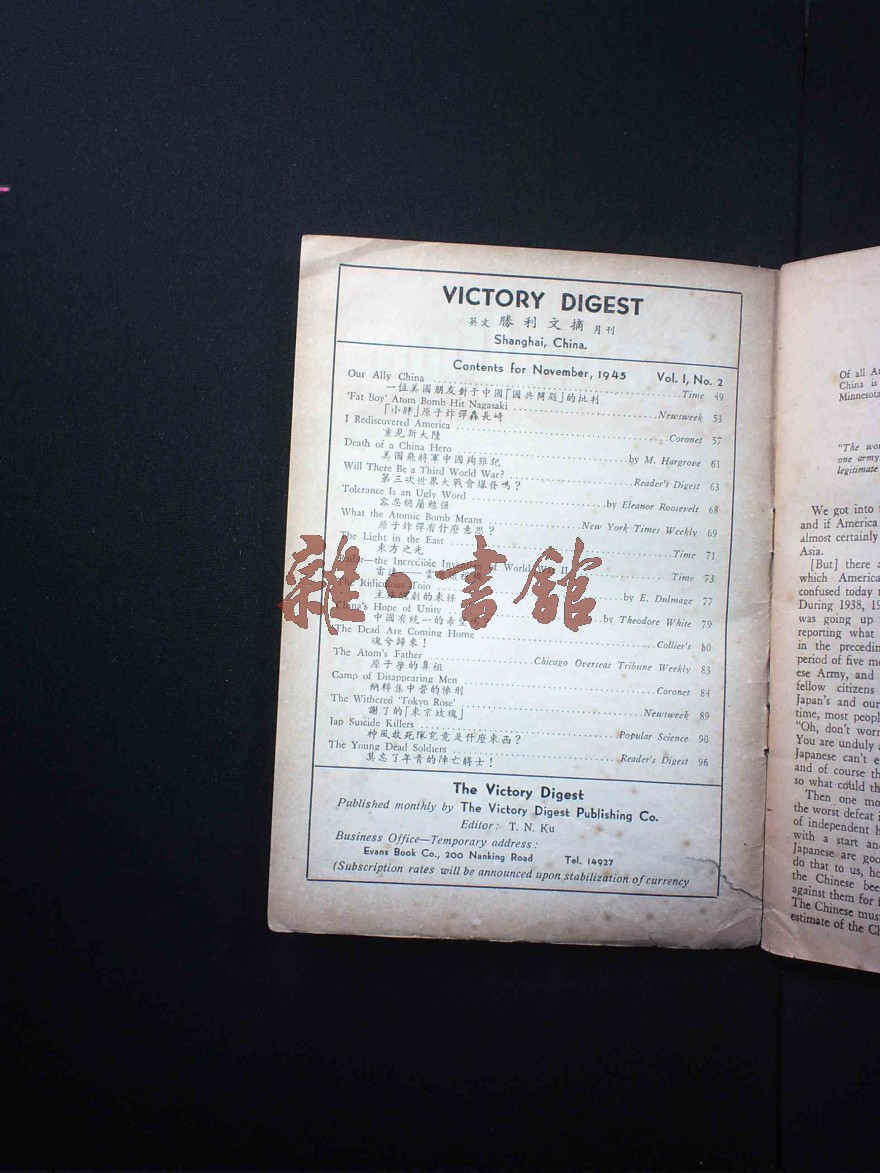 VICTORY DIGEST
英文 勝利文摘 月刊
Shanghai, China.
Contents for November, 1945 Vol. I, No. 2
Our Ally China Time 49
一位美國朋友對于中國「國共問題」的批判
'Fat Boy' Atom Bomb Hit Nagasaki Newsweek 53
「小胖」原子炸彈轟長崎
I Rediscovered America Coronet 57
重見新大陸
Death of a China Hero by M. Hargrove 61
美國飛將軍中國殉難記
Will There Be a Third World War? Reader's Digest 63
第三次世界大戰會爆發嗎?
Tolerance Is an Ugly Word by Eleanor Roosevelt 68
容忍總屬勉强
What the Atomic Bomb Means New York Times Weekly 69
原子炸彈有什麼意思?
The Light in the East Time 71
東方之光
Radar—the Incredible Invention of World War II Time 73
雷達
The Ridiculous Tojo by E. Dulmage 77
主演醜劇的東條
China's Hope of Unity by Theodore White 79
中國有統一的希望
The Dead Are Coming Home Collier's 80
魂兮歸來!
The Atom's Father Chicago Overseas Tribune Weekly 83
原子學的鼻祖
Camp of Disappearing Men Coronet 84
納粹集中營的慘刑
The Withered 'Tokyo Rose' Newsweek 89
謝了的「東京玫瑰」
Jap Suicide Killers Popular Science 90
神風敢死隊究竟是什麼東西?
The Young Dead Soldiers Reader's Digest 96
莫忘了年青的陣亡將士!
雜·書館
The Victory Digest
Published monthly by The Victory Digest Publishing Co.
Editor: T. N. Ku
Business Office—Temporary address:
Evans Book Co., 200 Nanking Road Tel. 14927
(Subscription rates will be announced upon stabilization of currency
Of all A
China is
Minnesota
"The wo
one army
legitimate
We got into
and if America
almost certainly
Asia.
[But] there a
which America
confused today
During 1938, 19
was going up
reporting what
in the precedin
period of five mo
ese Army, and
fellow citizens
Japan's and our
time, most peopl
"Oh, don't worr
You are unduly a
Japanese can't e
and of course th
so what could th
Then one mo
the worst defeat i
of independent h
with a start and
Japanese are goo
do that to us, ho
the Chinese bee
against them for f
The Chinese mus
estimate of the Ch